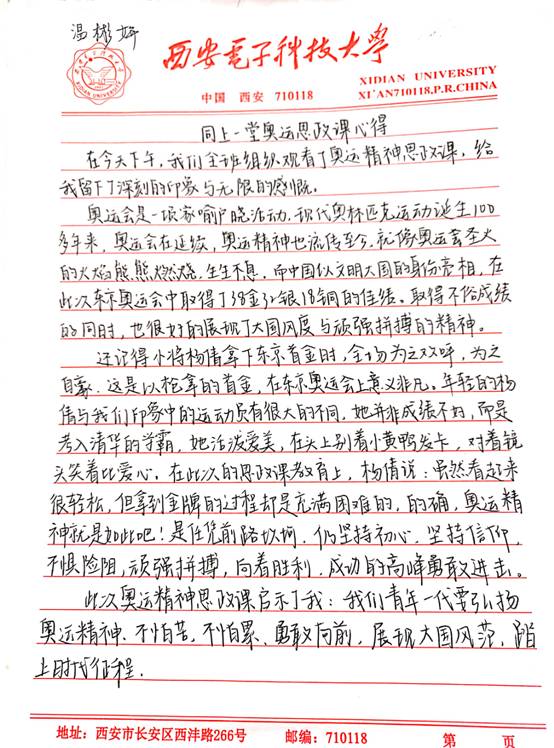 温彬妍
西安電子科技大學
XIDIAN UNIVERSITY
XI'AN710118,P.R.CHINA
中国 西安 710118
XIDIAN UNIVERSITY
同上一堂奥运思政课心得
在今天下午，我们全班组织观看了奥运精神思政课，给
我留下了深刻的印象与无限的感慨。
奥运会是一项家喻户晓活动，现代奥林匹克运动诞生100
多年来，奥运会在延续，奥运精神也流传至今，就像奥运会圣火
的火焰熊熊燃烧，生生不息，而中国以文明大国的身份亮相，在
此次东京奥运会中取得了38金32银18铜的佳绩。取得不俗成绩
的同时，也很好的展现了大国风度与顽强拼搏的精神。
还记得小将杨倩拿下东京首金时，全场为之欢呼，为之
自豪，这是以枪拿的首金，在东京奥运会上意义非凡。年轻的杨
倩与我们印象中的运动员有很大的不同，她并非成绩不好，而是
考入清华的学霸，她活泼爱美，在头上别着小黄鸭发卡，对着镜
头笑着比爱心。在此次的思政课教育上，杨倩说：虽然看起来
很轻松，但拿到金牌的过程却是充满困难的，的确，奥运精
神就是如此吧！是任凭前路坎坷，仍坚持初心，坚持信仰，
不惧险阻，顽强拼搏，向着胜利、成功的高峰勇敢进击。
此次奥运精神思政课启示了我：我们青年一代要弘扬
奥运精神、不怕苦，不怕累、勇敢向前，展现大国风范，踏
上时代征程.
地址：西安市长安区西沣路266号 邮编：710118 第 页